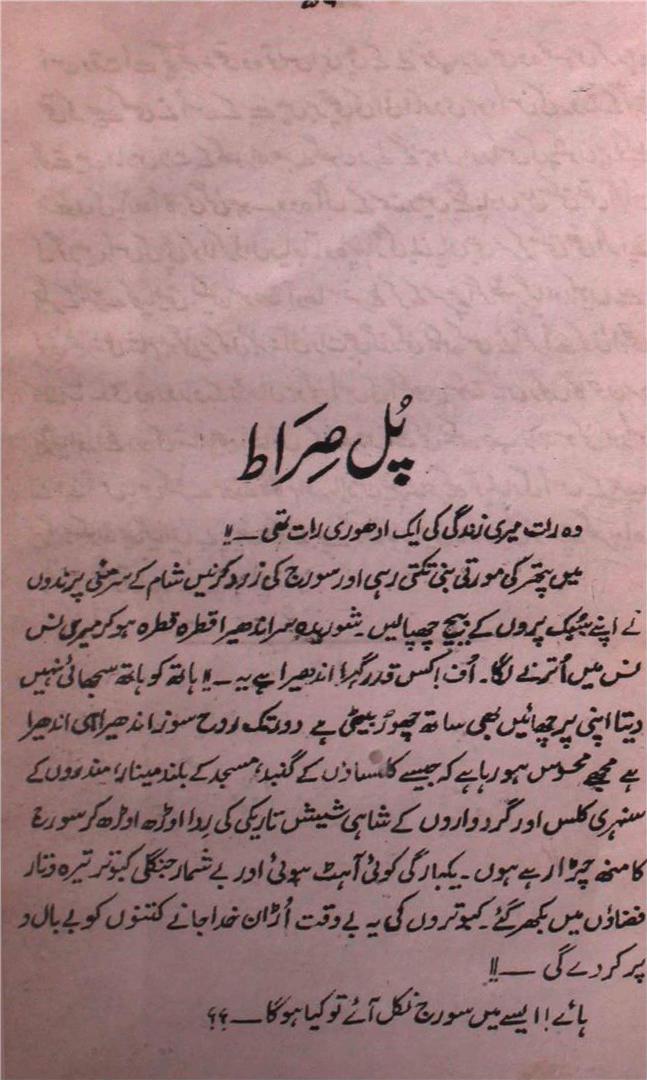 ۵۶
پُل صِرَاط
وہ رات میری زندگی کی ایک ادھوری رات تھی ــ !!
میں پتھر کی مورتی بنی تکتی رہی اور سورج کی زرد کرنیں شام کے سرمئی پرندوں
نے اپنے بھیگے پروں کے بیچ چھپالیں۔ شوریدہ سر اندھیرا قطرہ قطرہ ہو کر میری نس
نس میں اُترنے لگا۔ اُف! کس قدر گہرا اندھیرا ہے یہ ــ !! ہاتھ کو ہاتھ سجھائی نہیں
دیتا اپنی پرچھائیں بھی ساتھ چھوڑ بیٹھی ہے دور تک روح سوز اندھیرا ہی اندھیرا
ہے مجھے محسوس ہو رہا ہے کہ جیسے کلیساؤں کے گنبد، مسجد کے بلند مینار، مندروں کے
سنہری کلس اور گردواروں کے شاہی شیش تاریکی کی رِدا اوڑھ اوڑھ کر سورج
کا منھ چڑا رہے ہوں۔ یکبارگی کوئی آہٹ ہوئی اور بے شمار جنگلی کبوتر تیرہ و تار
فضاؤں میں بکھر گئے۔ کبوتروں کی یہ بے وقت اُڑان خدا جانے کتنوں کو بے بال و
پر کر دے گی ــ !!
ہائے!! ایسے میں سورج نکل آئے تو کیا ہوگا ــ ؟؟